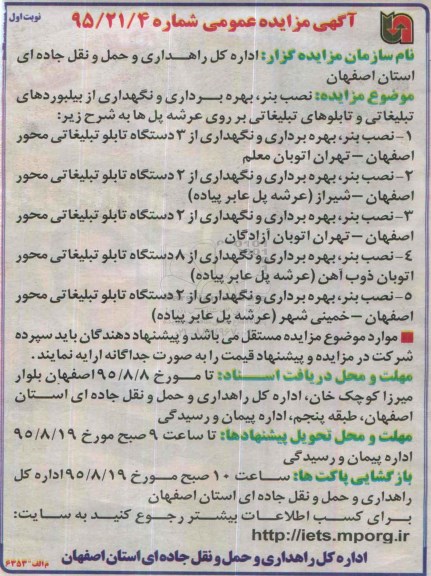 آگهی مزایده عمومی شماره ۹۵/۲۱/۴
نوبت اول
نام سازمان مزایده گزار: اداره کل راهـداری و حمل و نقل جاده ای
استان اصفهان
موضوع مزایده: نصب بنر، بهره بـرداری و نگهداری از بیلبوردهای
تبلیغاتی و تابلوهای تبلیغاتی بر روی عرشه پل ها به شرح زیر:
۱- نصب بنر، بهره برداری و نگهداری از ۳ دستگاه تابلو تبلیغاتی محور
اصفهان – تهران اتوبان معلم
۲- نصب بنر، بهره برداری و نگهداری از ۲ دستگاه تابلو تبلیغاتی محور
اصفهان – شیراز (عرشه پل عابر پیاده)
۳- نصب بنر، بهره برداری و نگهداری از ۲ دستگاه تابلو تبلیغاتی محور
اصفهان – تهران اتوبان آزادگان
۴- نصب بنر، بهره برداری و نگهداری از ۸ دستگاه تابلو تبلیغاتی محور
اتوبان ذوب آهن (عرشه پل عابر پیاده)
۵- نصب بنر، بهره برداری و نگهداری از ۲ دستگاه تابلو تبلیغاتی محور
اصفهان – خمینی شهر (عرشه پل عابر پیاده)
موارد موضوع مزایده مستقل می باشد و پیشنهاد دهندگان باید سپرده
شرکت در مزایده و پیشنهاد قیمت را به صورت جداگانه ارایه نمایند.
مهلت و محل دریافت اسـناد: تا مـورخ ۹۵/۸/۸ اصفهان بلوار
میرزا کوچک خان، اداره کل راهداری و حمل و نقل جاده ای استان
اصفهان، طبقه پنجم، اداره پیمان و رسیدگی
مهلت و محل تحویل پیشنهادها: تا ساعت ۹ صبح مورخ ۹۵/۸/۱۹
اداره پیمان و رسیدگی
بازگشایی پاکت ها: ساعت ۱۰ صبح مـورخ ۹۵/۸/۱۹ اداره کل
راهداری و حمل و نقل جاده ای استان اصفهان
برای کسب اطلاعات بیشتر رجوع کنید به سایت:
http://iets.mporg.ir
اداره کل راهداری و حمل و نقل جاده ای استان اصفهان
م الف: ۶۳۵۳